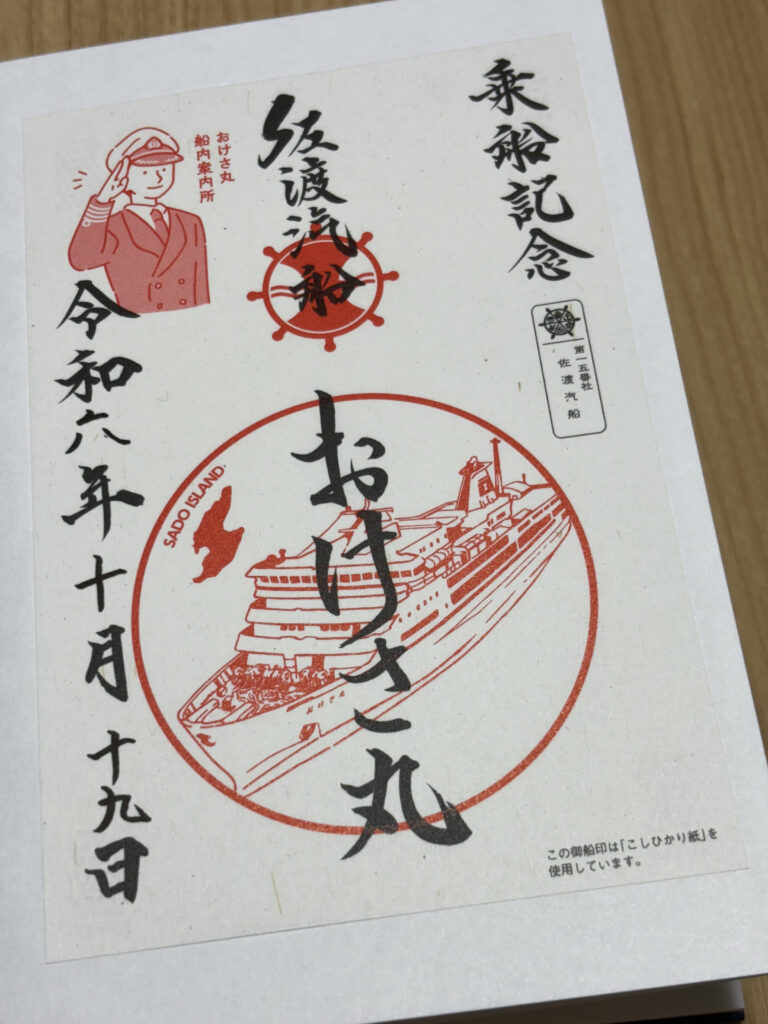 乗船記念
第一五番社
佐渡汽船
佐渡汽船
おけさ丸
おけさ丸
船内案内所
令和六年十月十九日
SADO ISLAND
おけさ丸
この御船印は「こしひかり紙」を
使用しています。